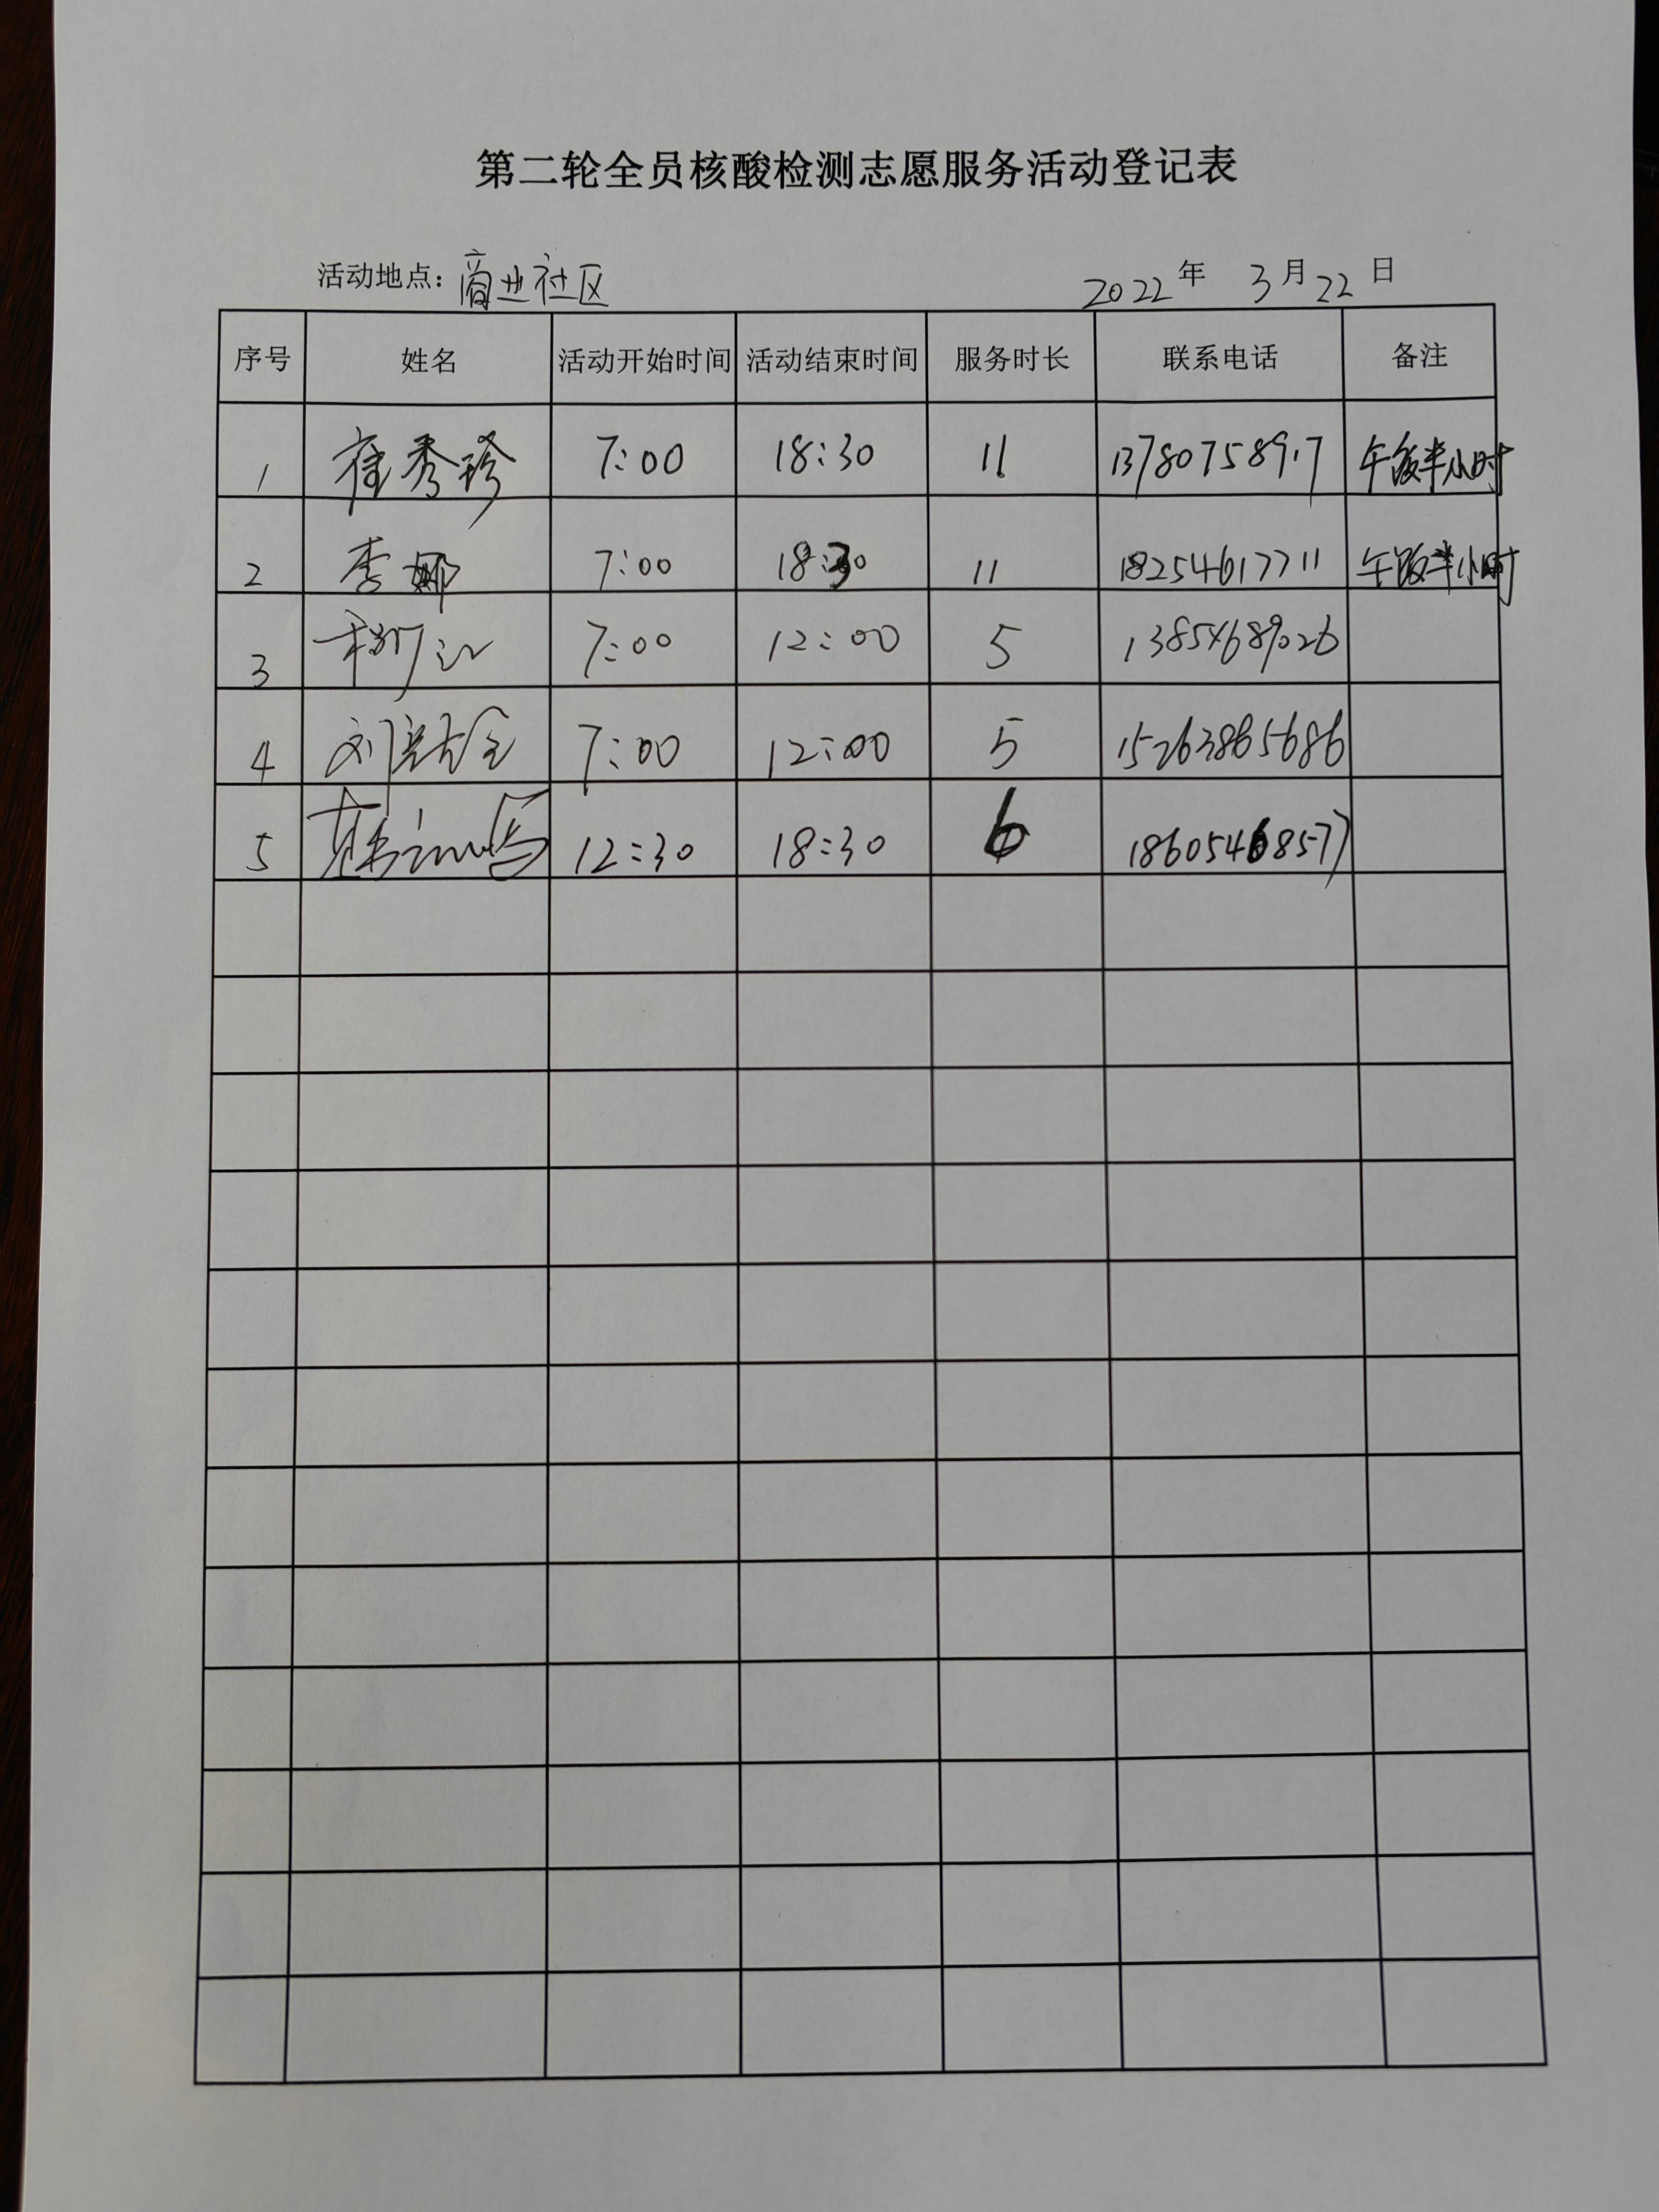 第二轮全员核酸检测志愿服务活动登记表
活动地点：商业社区 2022年 3月22日
序号 姓名 活动开始时间 活动结束时间 服务时长 联系电话 备注
1 崔秀珍 7:00 18:30 11 午饭半小时
2 李娜 7:00 18:30 11 18254617711 午饭半小时
3 7:00 12:00 5 13854689026
4 7:00 12:00 5 15263865686
5 12:30 18:30 6 18605468577